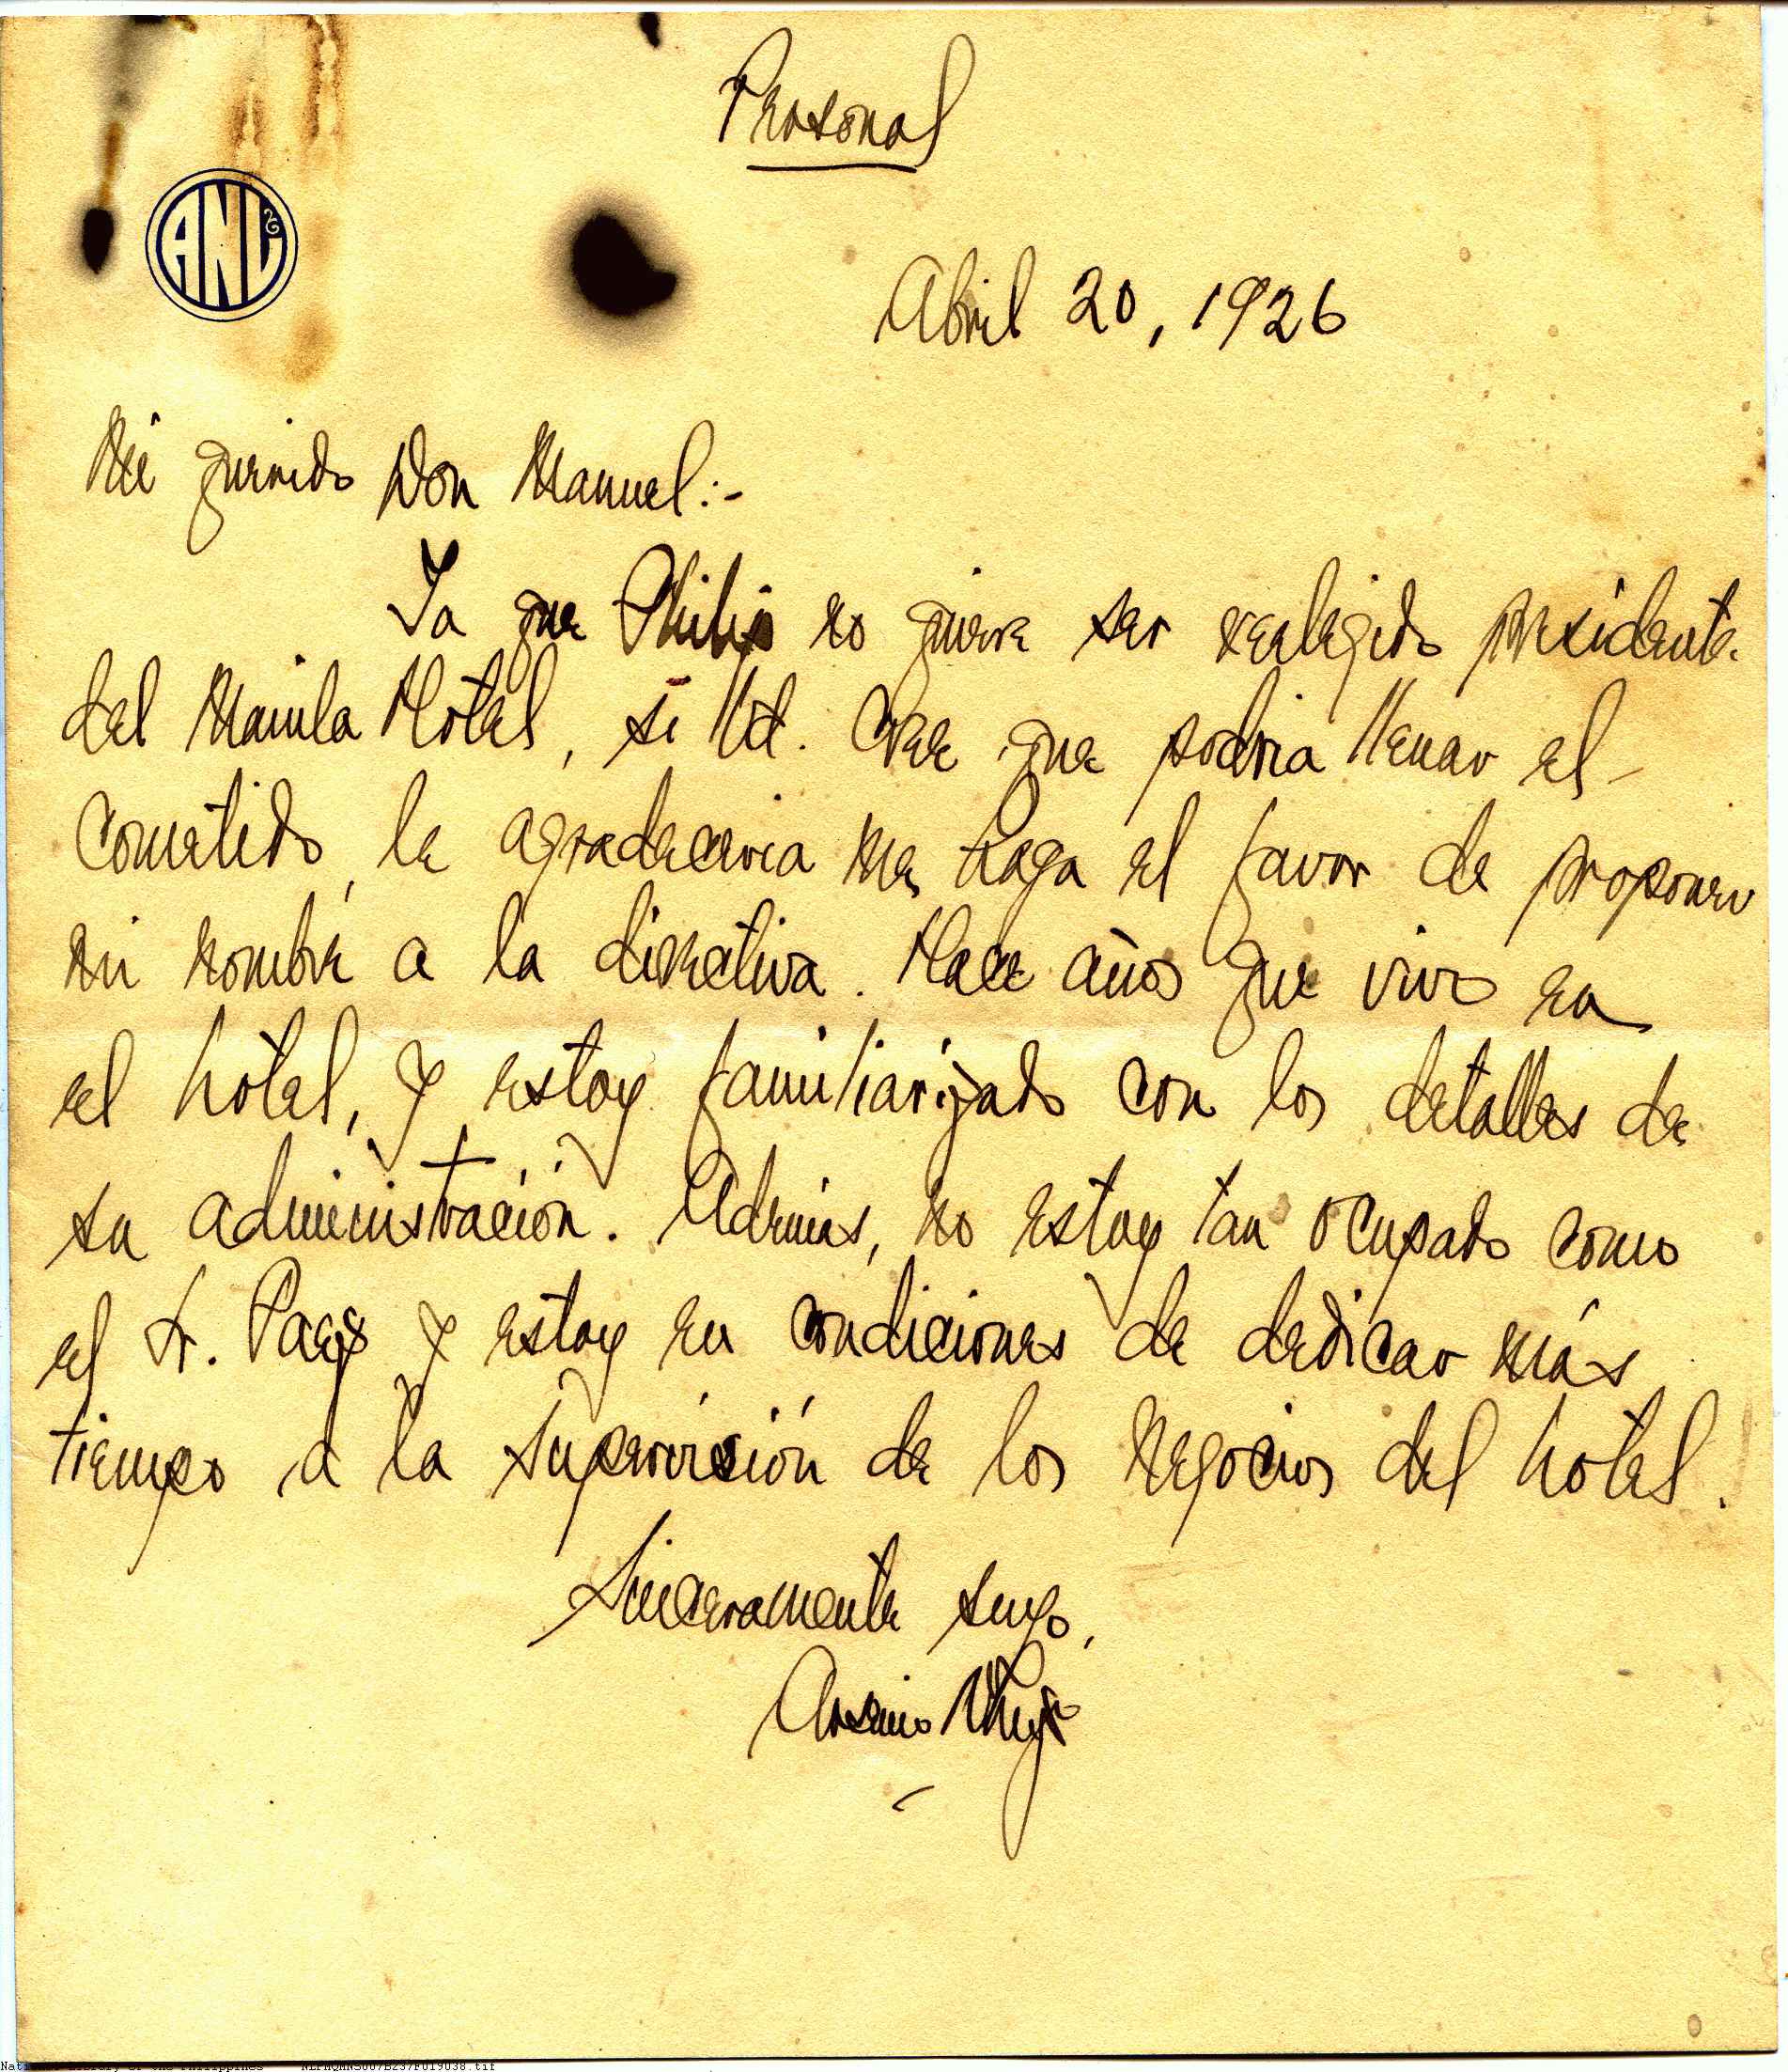 Personal
ANL
Abril 20, 1926
Mi querido Don Manuel:-
Ya que Philip no quiere ser reelegido presidente
del Manila Hotel, si Ud. cree que podria llenar el
cometido, le agradeceria me haga el favor de proponer
mi nombre a la directiva. Hace años que vivo en
el hotel, y estoy familiarizado con los detalles de
su administración. Además, no estoy tan ocupado como
el Sr. Paez y estoy en condiciones de dedicar más
tiempo a la supervisión de los negocios del hotel.
Sinceramente suyo,
Arsenio
National Library of the Philippines